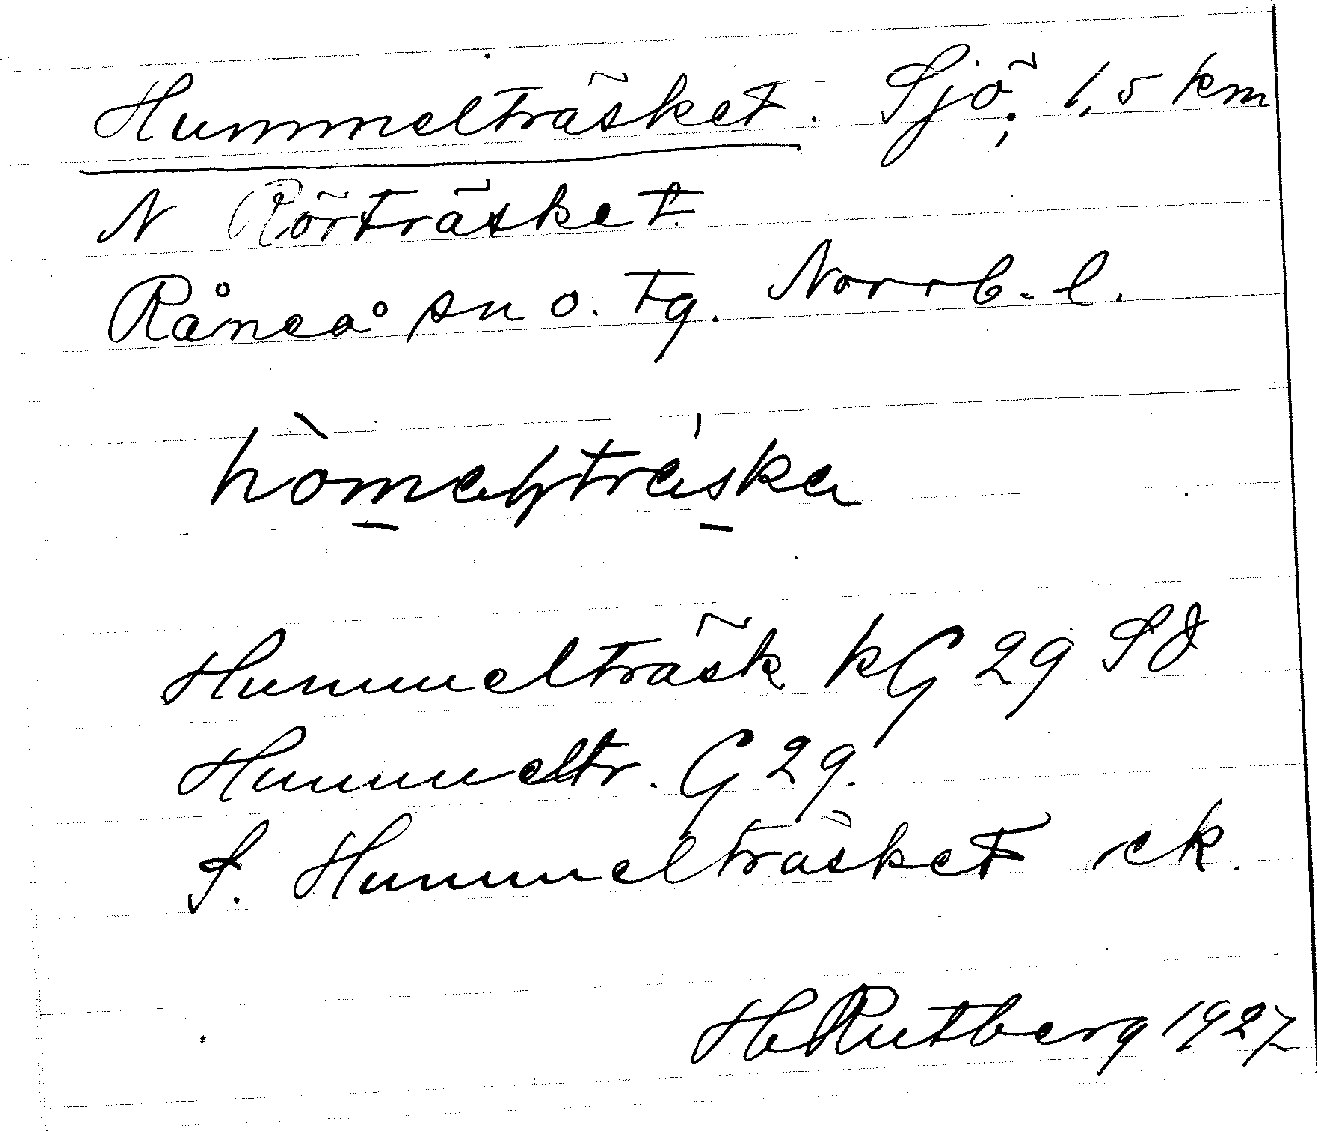 Hummelträsket. Sjö; 1,5 km
N Rörträsket.
Råneå sn o. tg. Norrb. l.
Hummelträsk kG 29 SO
Hummeltr. G 29.
S. Hummelträsket ek.
H Rutberg 1927